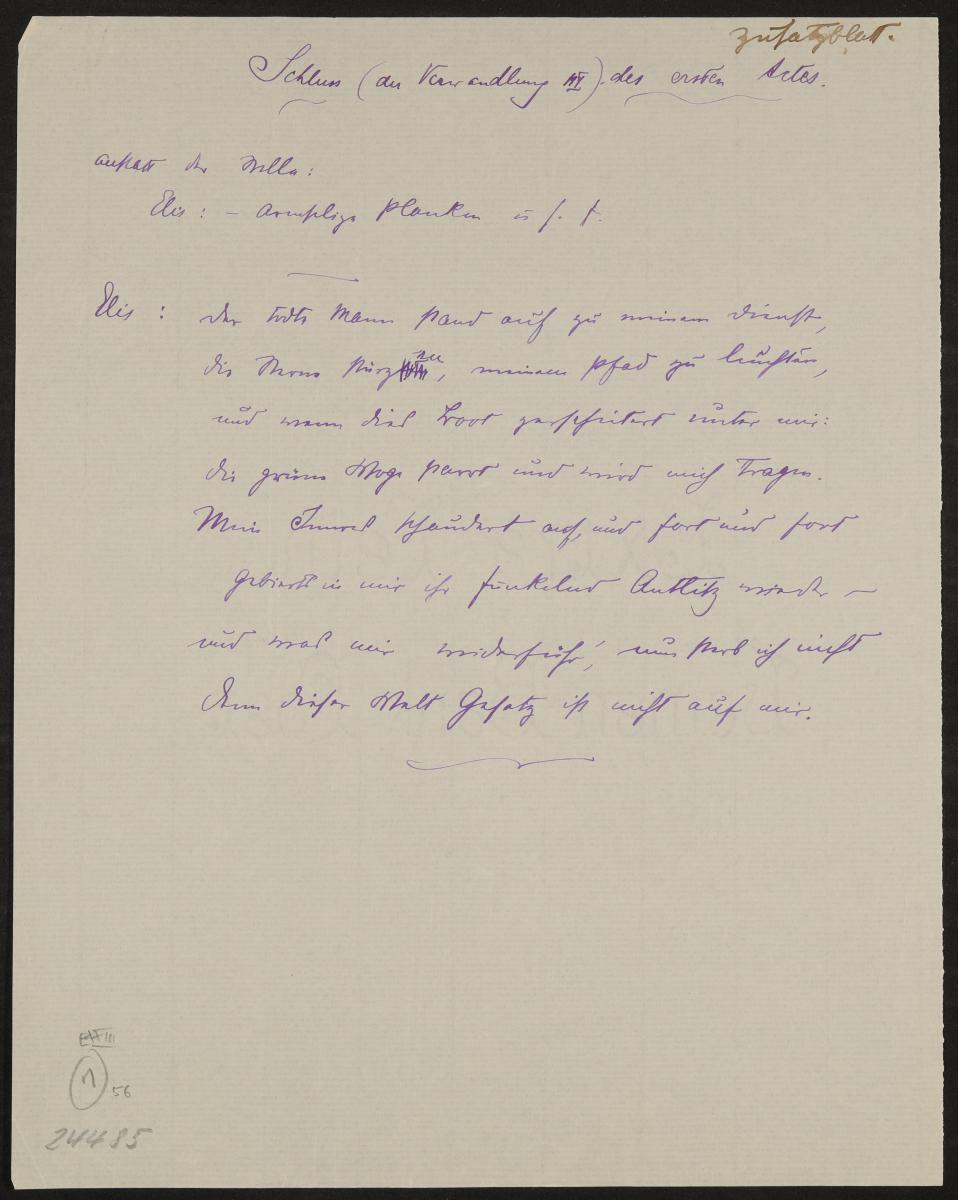 Zusatzblatt.
Schluss (der Verwandlung IV) des ersten Actes.
anstatt der Stelle:
Elis: – Armselige Planken u s. f.
Elis: der todte Mann stand auf zu meinem Dienst,
die Sterne stürzen, meinem Pfad zu leuchten,
und wenn dies Boot zerscheitert unter mir:
die grüne Woge starrt und wird mich tragen.
Mein Innres schaudert auf, und fort und fort
gebierts in mir ihr funkelnd Antlitz wieder –
und was mir widerführ', nun sterb ich nicht
denn dieser Welt Gesetz ist nicht auf mir.
III
1
56
24485